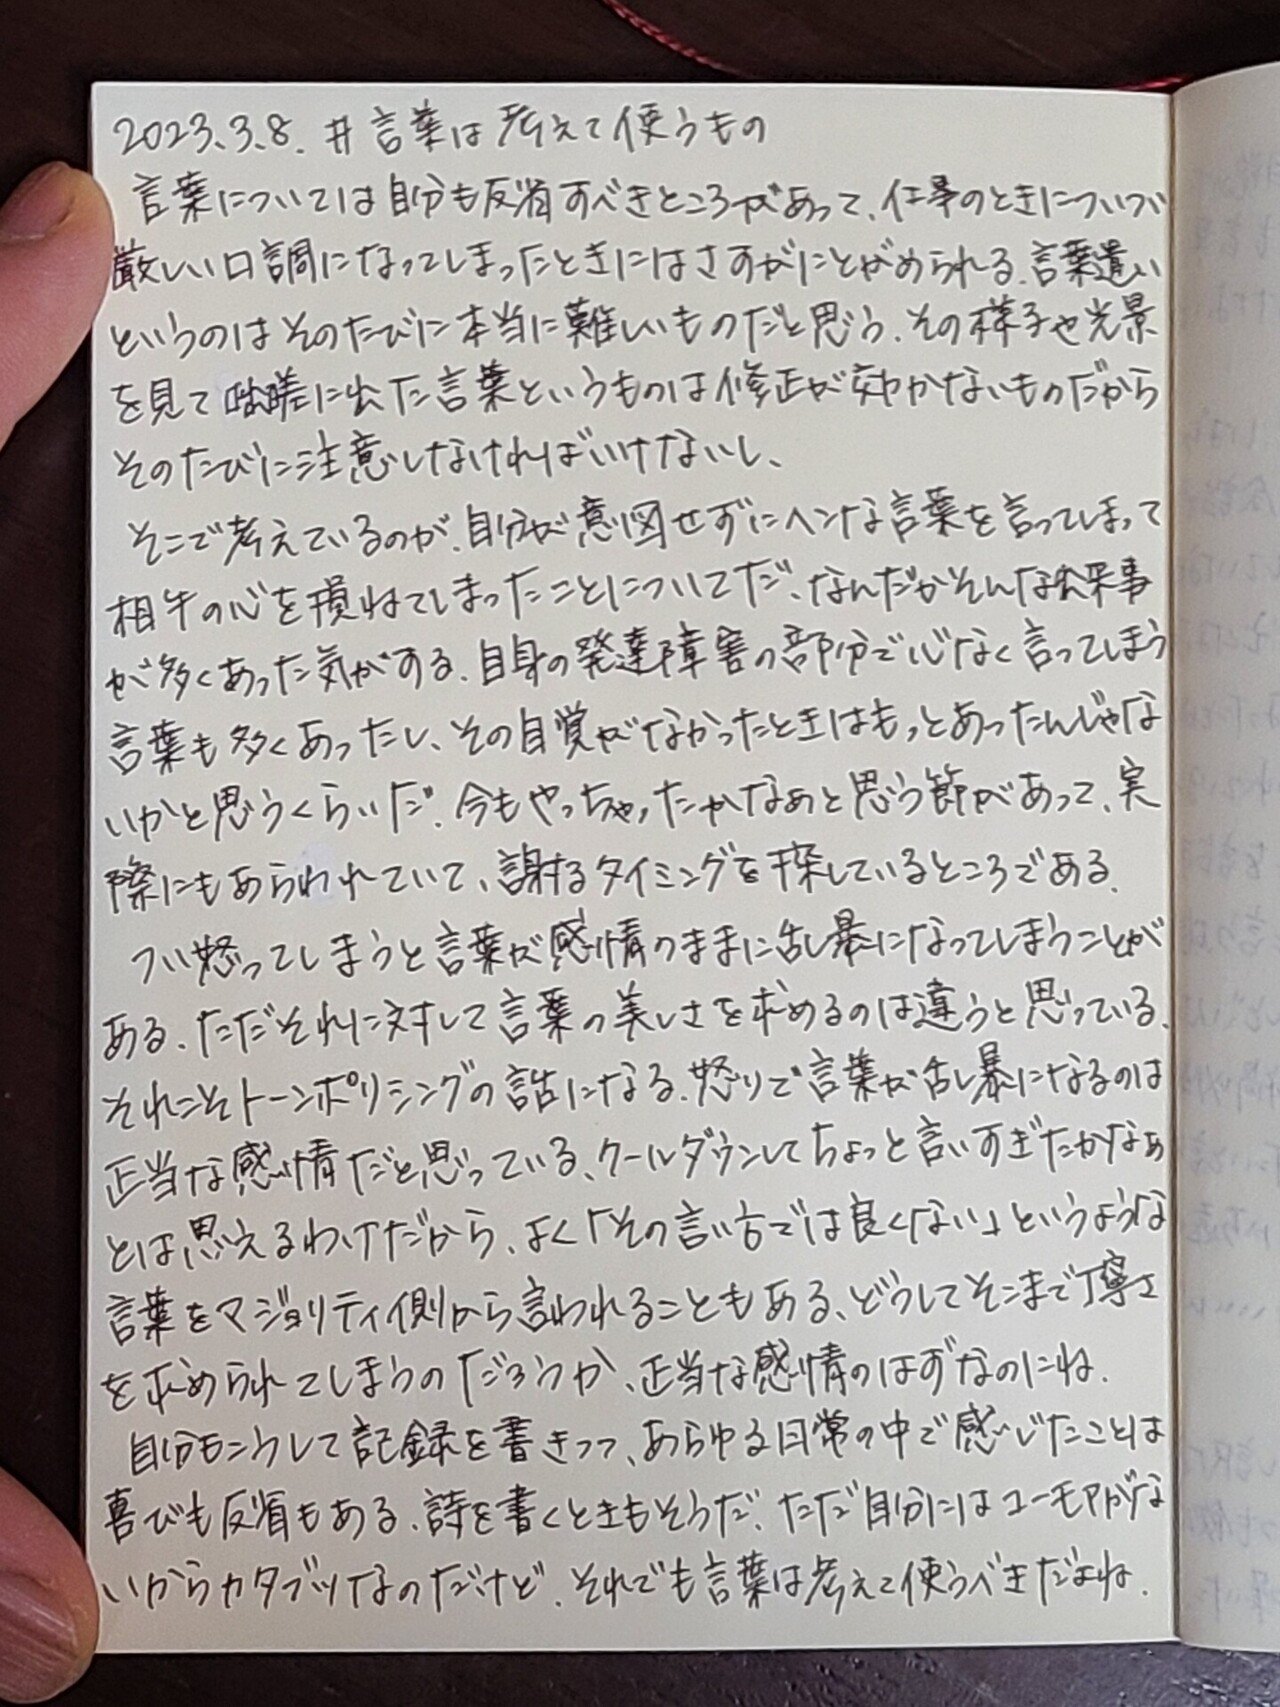 2023.3.8. #言葉は考えて使うもの
言葉については自分も反省すべきところがあって、仕事のときについつい
厳しい口調になってしまったときにはさすがにとがめられる。言葉遣い
というのはそのたびに本当に難しいものだと思う。その様子や光景
を見て咄嗟に出た言葉というものは修正が効かないものだから
そのたびに注意しなければいけないし、
そこで考えているのが、自分が意図せずにヘンな言葉を言ってしまって
相手の心を損ねてしまったことについてだ、なんだかそんな出来事
が多くあった気がする。自身の発達障害の部分で心なく言ってしまう
言葉も多くあったし、その自覚がなかったときはもっとあったんじゃな
いかと思うくらいだ。今もやっちゃったかなぁと思う節があって、実
際にもあらわれていて、謝るタイミングを探しているところである。
つい怒ってしまうと言葉が感情のままに乱暴になってしまうことが
ある、ただそれに対して言葉の美しさを求めるのは違うと思っている、
それこそトーンポリシングの話になる。怒りで言葉が乱暴になるのは
正当な感情だと思っている、クールダウンしてちょっと言いすぎたかなぁ
とは思えるわけだから、よく「その言い方では良くない」というような
言葉をマジョリティ側から言われることもある、どうしてそこまで丁寧さ
を求められてしまうのだろうか、正当な感情のはずなのにね。
自分もこうして記録を書きつつ、あらゆる日常の中で感じたことは
喜びも反省もある、詩を書くときもそうだ、ただ自分にはユーモアがな
いからカタブツなのだけど、それでも言葉は考えて使うべきだよね。